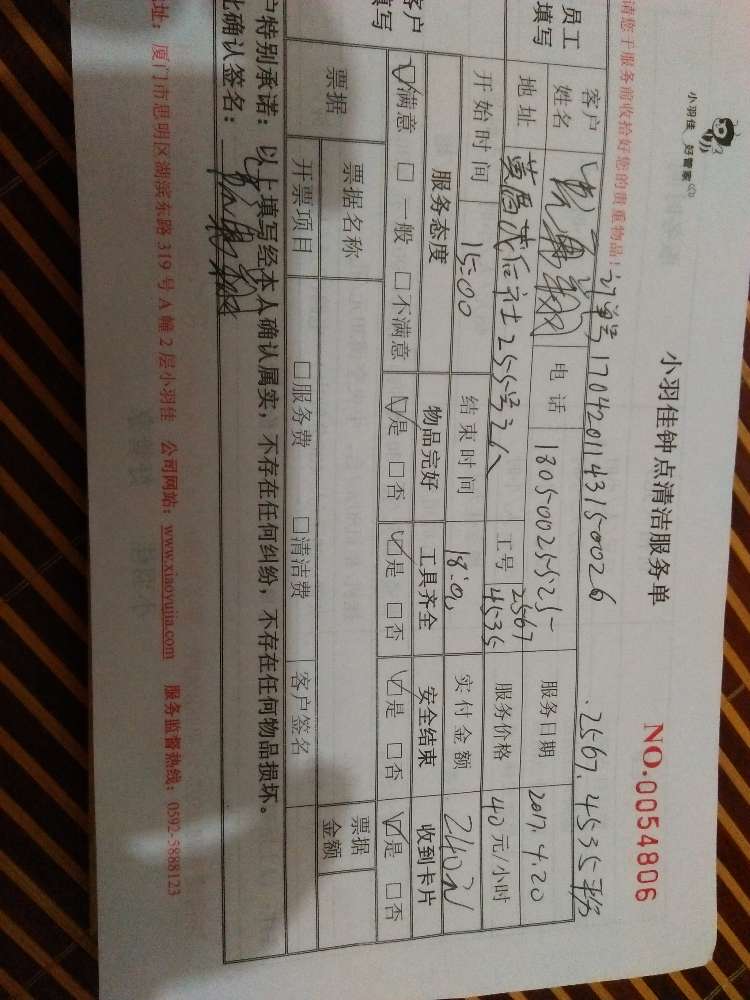 小羽佳 好管家
小羽佳钟点清洁服务单
NO.0054806
请您于服务前收拾好您的贵重物品！ 订单号1704201143150026 .2567.4535
员工填写
客户姓名
电话 18050025525
服务日期 2017.4.20
地址
工号 2567 4535
服务价格 40元/小时
开始时间 15:00
结束时间
实付金额 240元
客户填写
服务态度 物品完好 工具齐全 安全结束 收到卡片
☑满意 □一般 □不满意 ☑是 □否 ☑是 □否 ☑是 □否 ☑是 □否
票据 票据名称 票据金额
开票项目 □服务费 □清洁费 客户签名
户特别承诺：以上填写经本人确认属实，不存在任何纠纷，不存在任何物品损坏。
此确认签名：
地址：厦门市思明区湖滨东路319号A幢2层小羽佳 公司网站：www.xiaoyujia.com 服务监督热线：0592-5888123